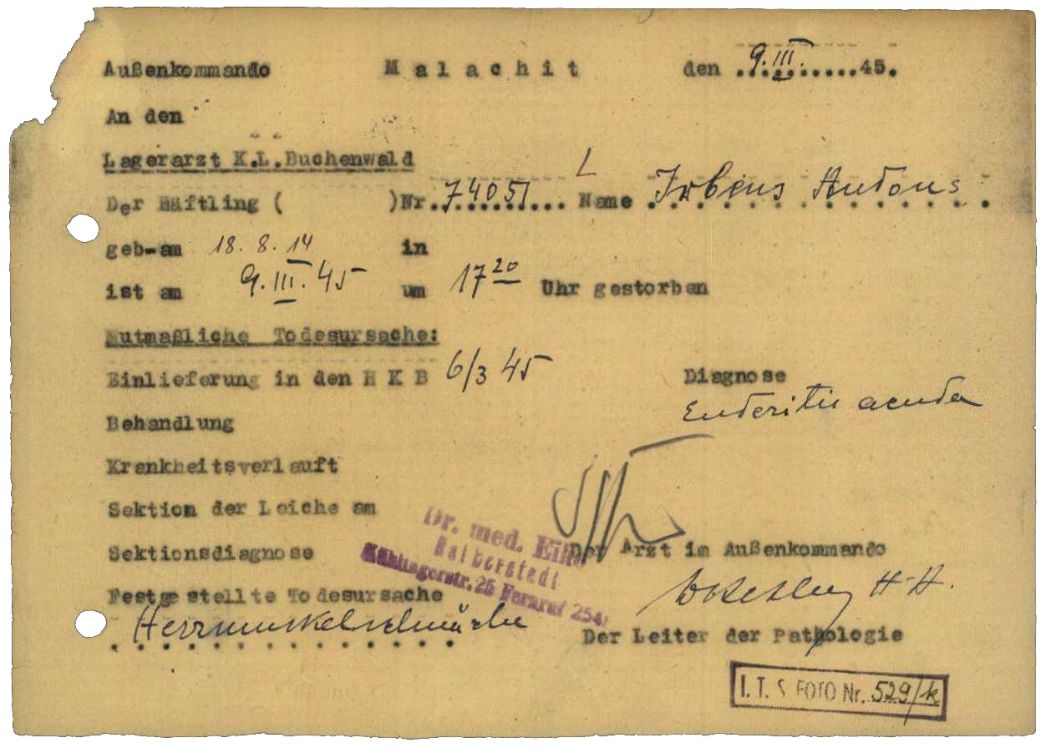 Außenkommando M a l a c h i t den 9.III. 45.
An den
Lagerarzt K.L.Buchenwald
L
Der Häftling ( )Nr. 74051 Name Irbens Antons
geb-am 18.8.14 in
ist am 9.III.45 um 17 20 Uhr gestorben
Mutmaßliche Todesursache:
Einlieferung in den H K B 6/3 45 Diagnose
Enteritis acuta
Behandlung
Krankheitsverlauft
Sektion der Leiche am
Dr. med.
Halberstadt
Sektionsdiagnose Der Arzt im Außenkommando
25 Fernruf 254
Festgestellte Todesursache
Herzmuskelschwäche
Der Leiter der Pathologie
I.T.S FOTO Nr. 529/k